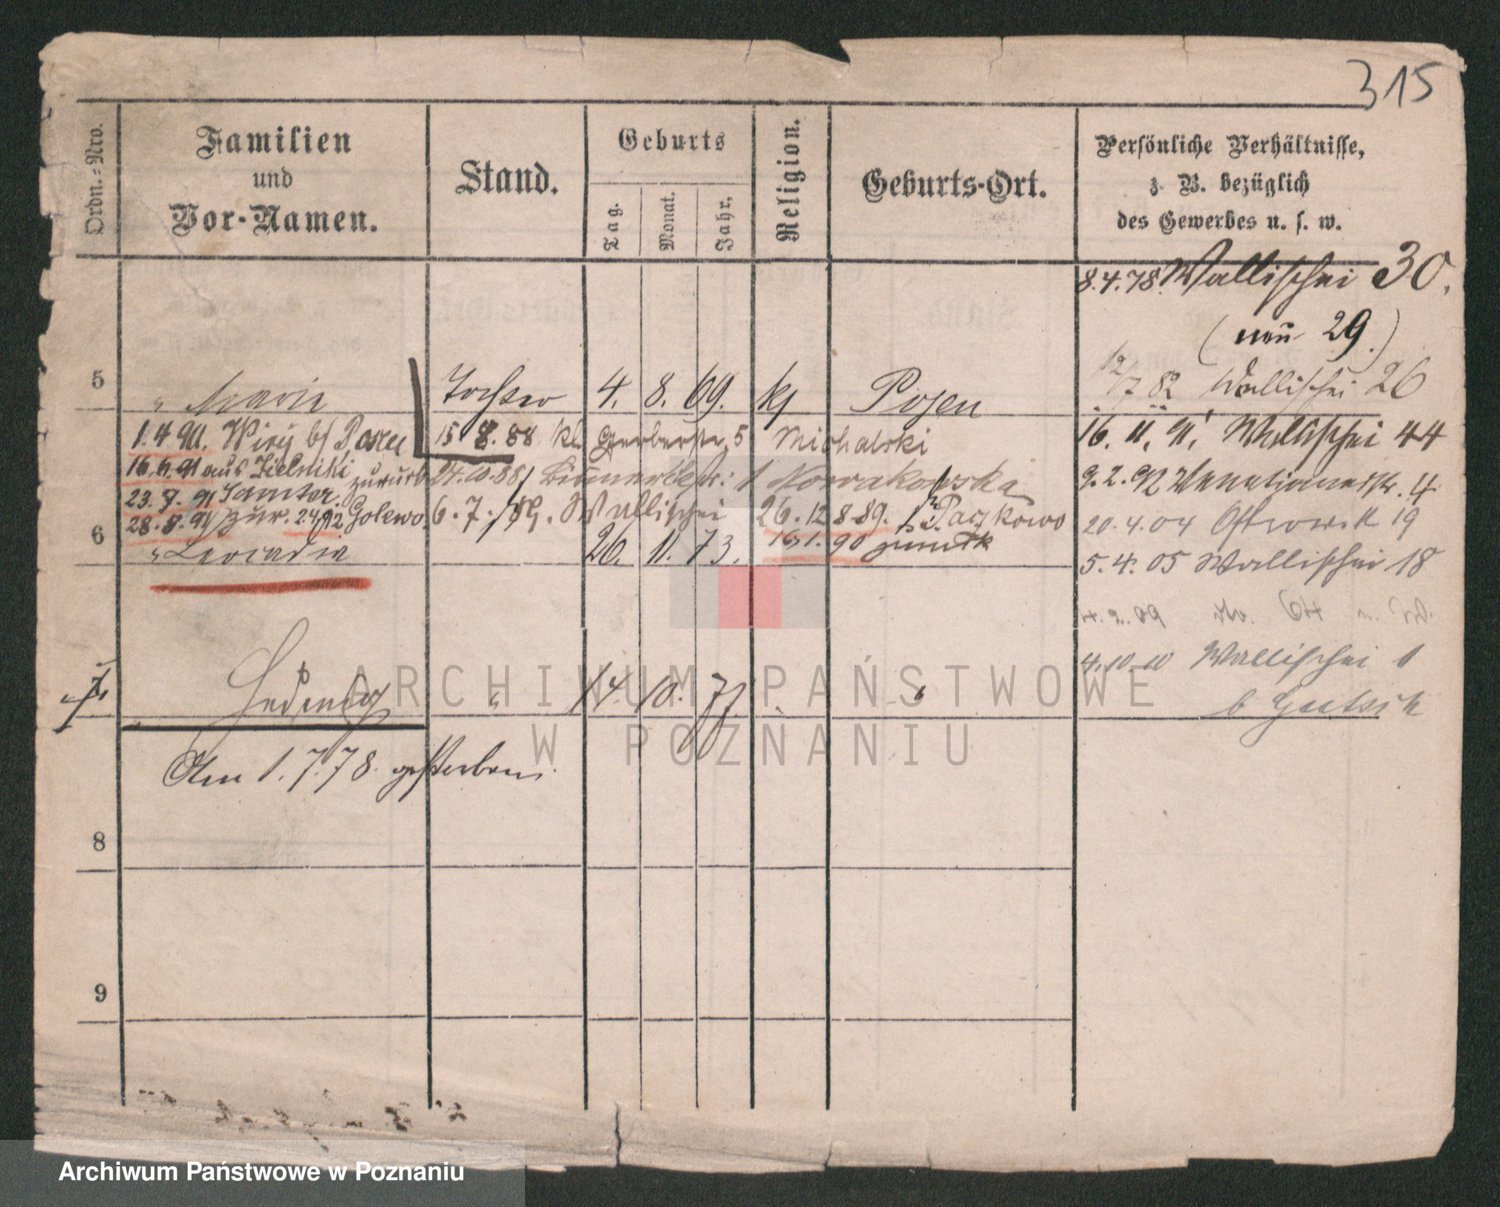 315
Ordn.-Nro.
Familien
und
Vor-Namen.
Stand.
Geburts
Tag.
Monat.
Jahr,
Religion.
Geburts-Ort.
Persönliche Verhältnisse,
z. B. bezüglich
des Gewerbes u. s. w.
8.4.78 Wallischei 30.
(neu 29.)
12/7 82 Wallischei 26
5 " Marie Tochter 4. 8. 69. kj Posen
1.4.90. Wiry b/ Posen 15 8.88 Kl. Gerberstr. 5 Michalski
16. 11. 91 Wallischei 44
16.6.91 aus Zielniki zurück 24.10.88 1 Nowakowska
9.2.92 Venetianerstr. 4
23.8.91 Samter.
28.8.91 zur. 24.9.92 Golewo 6.7.89. Wallischei 26.12.8.89. Paczkowo
20.4.04 Ostrowek 19
16.1.90 zurück
6 " Leocadia 20. 11. 73.
5.4.05 Wallischei 18
4.2.09
4.10.10 Wallischei 1
b
7 Hedwig " 14. 10. 77. "
Am 1.7.78. gestorben.
8
9
ARCHIWUM PAŃSTWOWE
W POZNANIU
Archiwum Państwowe w Poznaniu